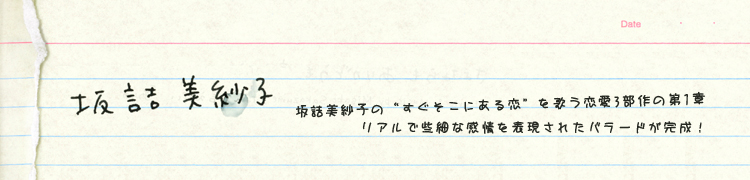 Date
坂詰美紗子
坂詰美紗子の“すぐそこにある恋”を歌う恋愛3部作の第1章
リアルで些細な感情を表現されたバラードが完成！